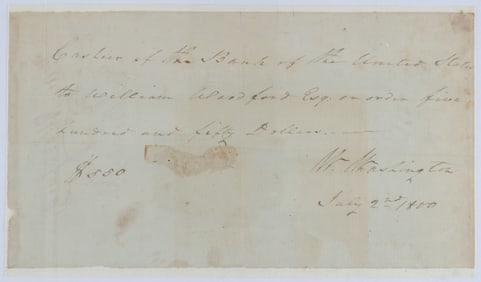 Cashier of the Bank of the United States
to William Woodford Esq. or order five
hundred and fifty Dollars
$550
W. Washington
July 2nd 1800